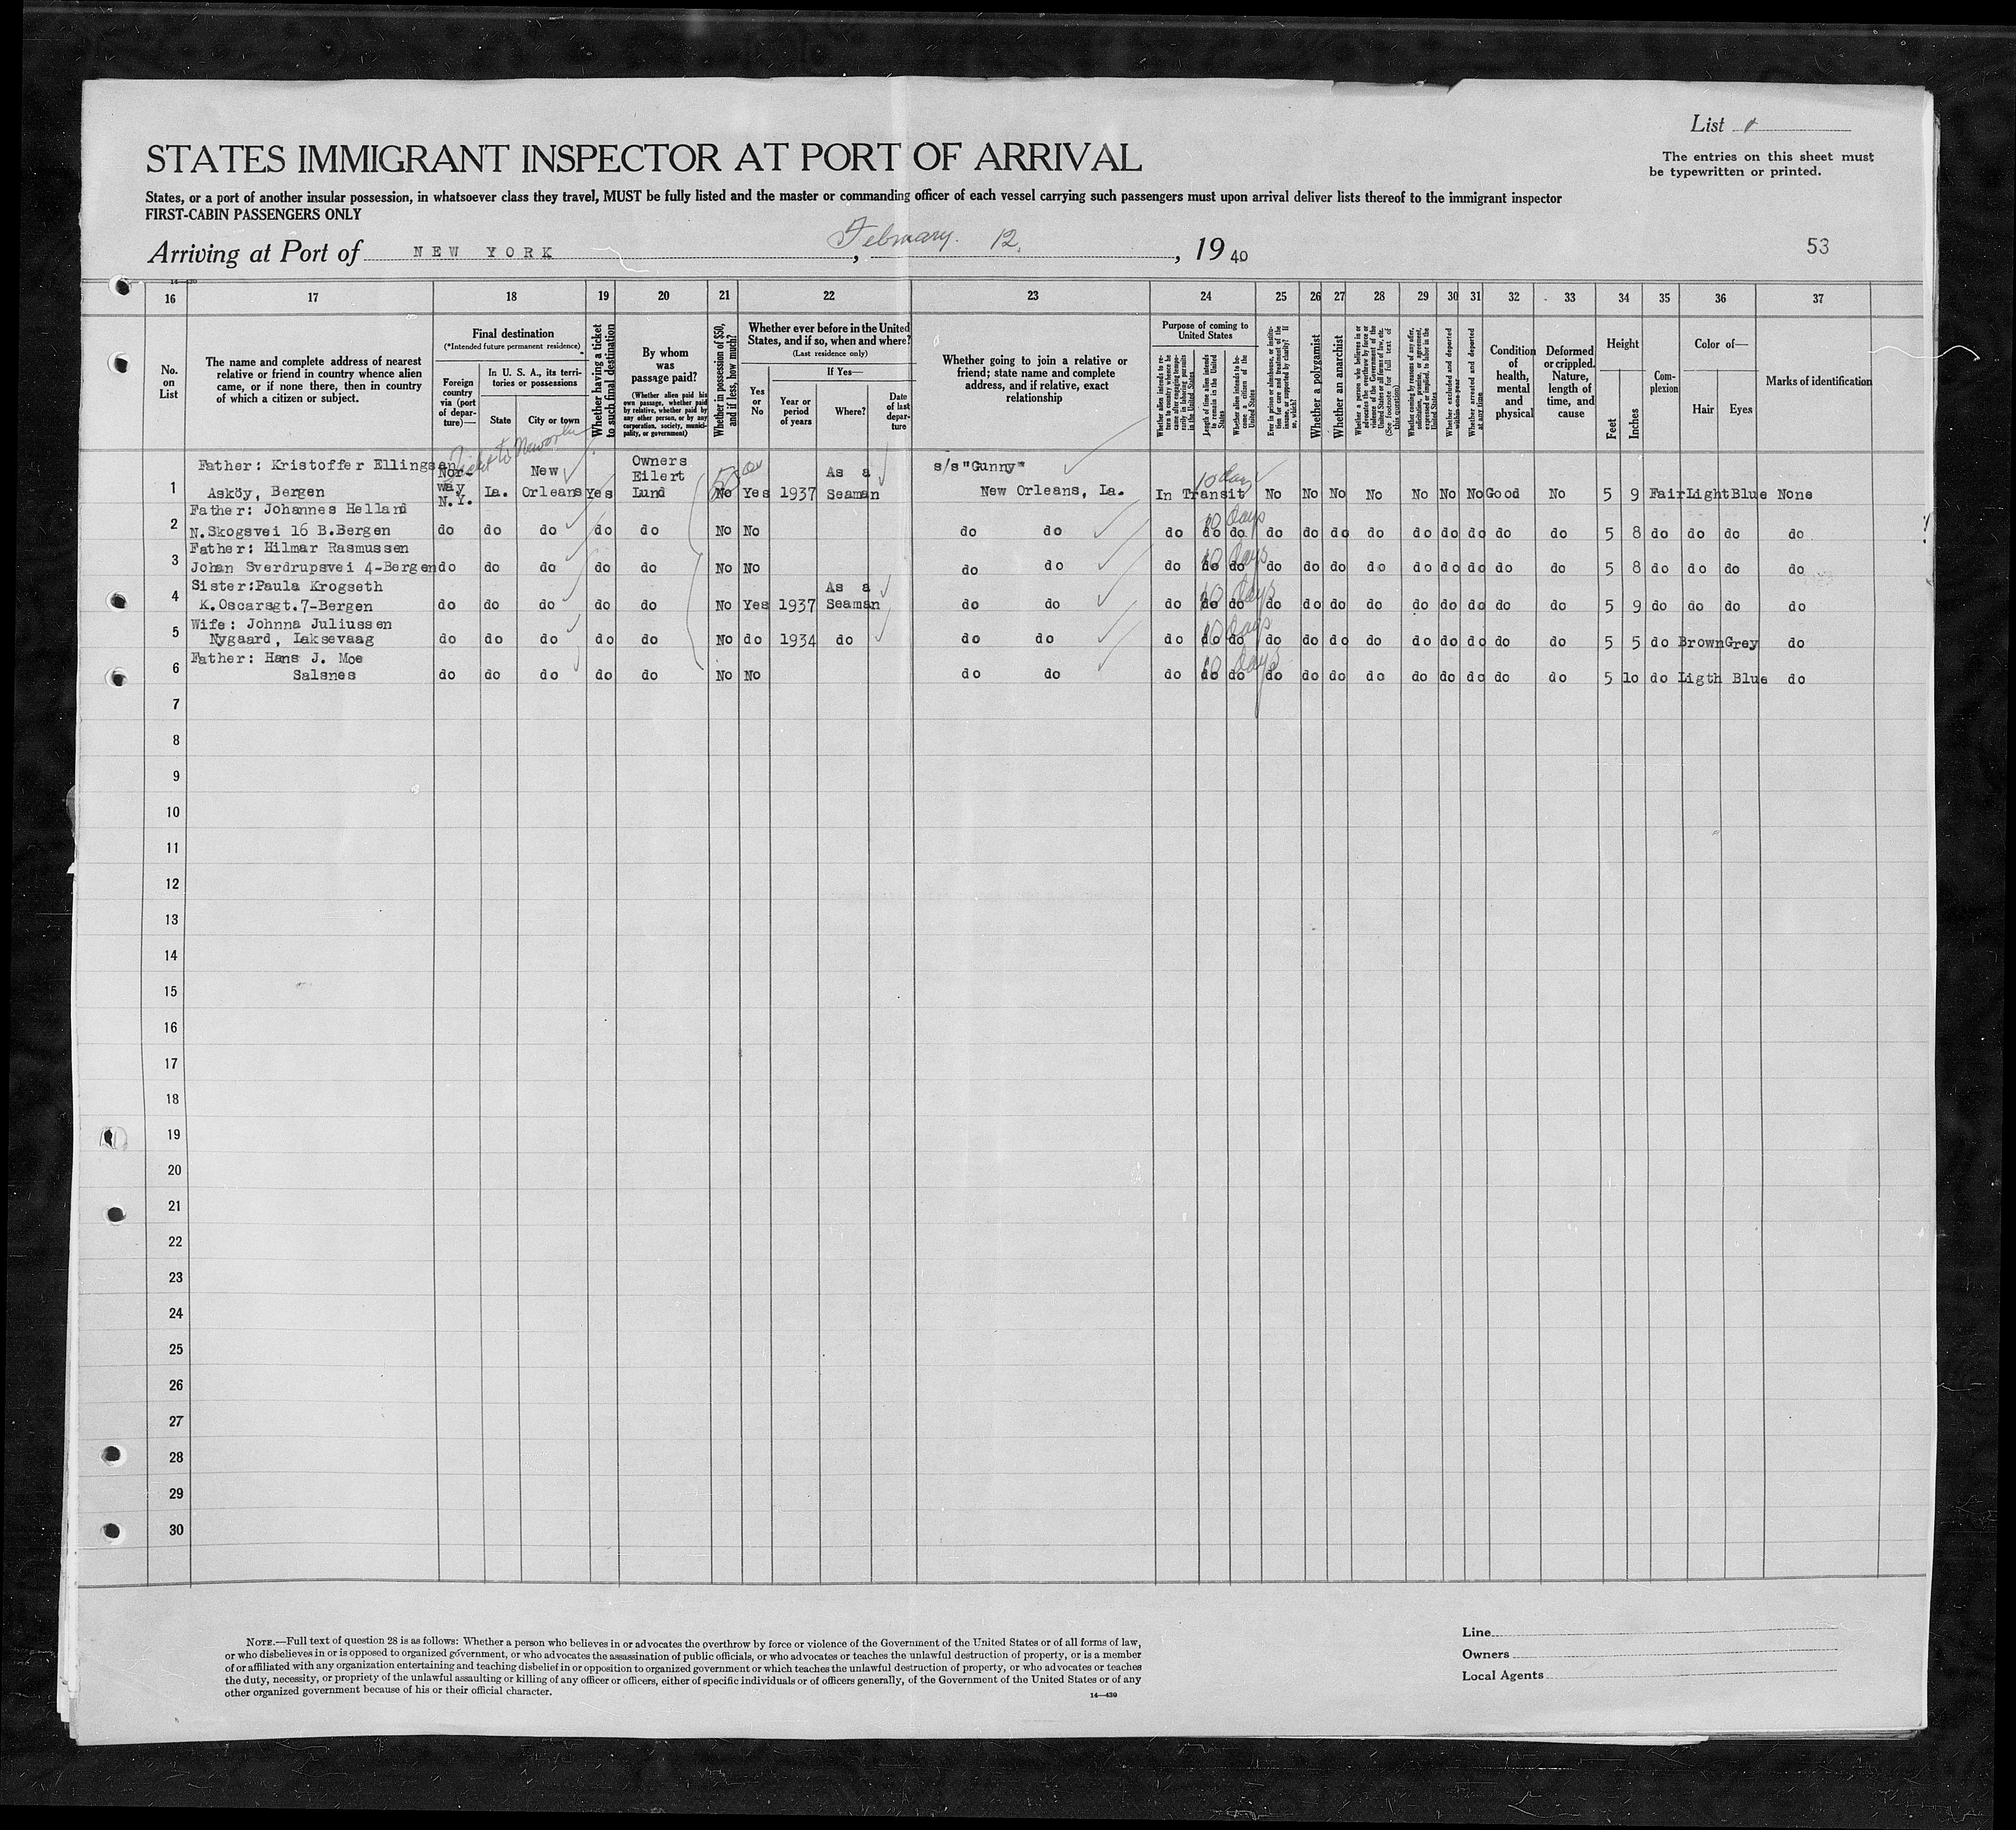 List
STATES IMMIGRANT INSPECTOR AT PORT OF ARRIVAL
The entries on this sheet must
be typewritten or printed.
States, or a port of another insular possession, in whatsoever class they travel, MUST be fully listed and the master or commanding officer of each vessel carrying such passengers must upon arrival deliver lists thereof to the immigrant inspector
FIRST-CABIN PASSENGERS ONLY
Arriving at Port of NEW YORK, February. 12, 1940
53
16 17 18 19 20 21 22 23 24 25 26 27 28 29 30 31 32 33 34 35 36 37
No. on List
The name and complete address of nearest
relative or friend in country whence alien
came, or if none there, then in country
of which a citizen or subject.
Final destination
(*Intended future permanent residence)
Foreign country via (port of departure)—
In U. S. A., its territories or possessions
State
City or town
Whether having a ticket to such final destination
By whom was passage paid?
(Whether alien paid his own passage, whether paid by relative, whether paid by any other person, or by any corporation, society, municipality, or government)
Whether in possession of $50, and if less, how much?
Whether ever before in the United States, and if so, when and where?
(Last residence only)
Yes or No
If Yes—
Year or period of years
Where?
Date of last departure
Whether going to join a relative or
friend; state name and complete
address, and if relative, exact
relationship
Purpose of coming to United States
Whether alien intends to return to country whence he came after engaging temporarily in laboring pursuits in the United States
Length of time alien intends to remain in the United States
Whether alien intends to become a citizen of the United States
Ever in prison or almshouse, or institution for care and treatment of the insane, or supported by charity? If so, which?
Whether a polygamist
Whether an anarchist
Whether a person who believes in or advocates the overthrow by force or violence of the Government of the United States or all forms of law, etc. (See footnote for full text of this question)
Whether coming by reasons of any offer, solicitation, promise, or agreement, expressed or implied, to labor in the United States
Whether excluded and deported within one year
Whether arrested and deported at any time
Condition of health, mental and physical
Deformed or crippled. Nature, length of time, and cause
Height
Feet
Inches
Complexion
Color of—
Hair
Eyes
Marks of identification
Ticket to New Orleans
1 Father: Kristoffer Ellingsen
Asköy, Bergen Norway N.Y. La. New Orleans Yes Owners Eilert Lund 50 No Yes 1937 As a Seaman s/s "Gunny" New Orleans, La. In Transit 10 days No No No No No No No Good No 5 9 Fair Light Blue None
2 Father: Johannes Helland
N.Skogsvei 16 B.Bergen do do do do do No No do do do 10 days do do do do do do do do do do do 5 8 do do do do
3 Father: Hilmar Rasmussen
Johan Sverdrupsvei 4-Bergen do do do do do No No do do do 10 days do do do do do do do do do do do 5 8 do do do do
4 Sister:Paula Krogseth
K.Oscarsgt.7-Bergen do do do do do No Yes 1937 As a Seaman do do do 10 days do do do do do do do do do do do 5 9 do do do do
5 Wife: Johnna Juliussen
Nygaard, Laksevaag do do do do do No do 1934 do do do do 10 days do do do do do do do do do do do 5 5 do Brown Grey do
6 Father: Hans J. Moe
Salsnes do do do do do No No do do do 10 days do do do do do do do do do do do 5 10 do Ligth Blue do
7
8
9
10
11
12
13
14
15
16
17
18
19
20
21
22
23
24
25
26
27
28
29
30
NOTE.—Full text of question 28 is as follows: Whether a person who believes in or advocates the overthrow by force or violence of the Government of the United States or of all forms of law,
or who disbelieves in or is opposed to organized government, or who advocates the assassination of public officials, or who advocates or teaches the unlawful destruction of property, or is a member
of or affiliated with any organization entertaining and teaching disbelief in or opposition to organized government or which teaches the unlawful destruction of property, or who advocates or teaches
the duty, necessity, or propriety of the unlawful assaulting or killing of any officer or officers, either of specific individuals or of officers generally, of the Government of the United States or of any
other organized government because of his or their official character.
14—430
Line
Owners
Local Agents